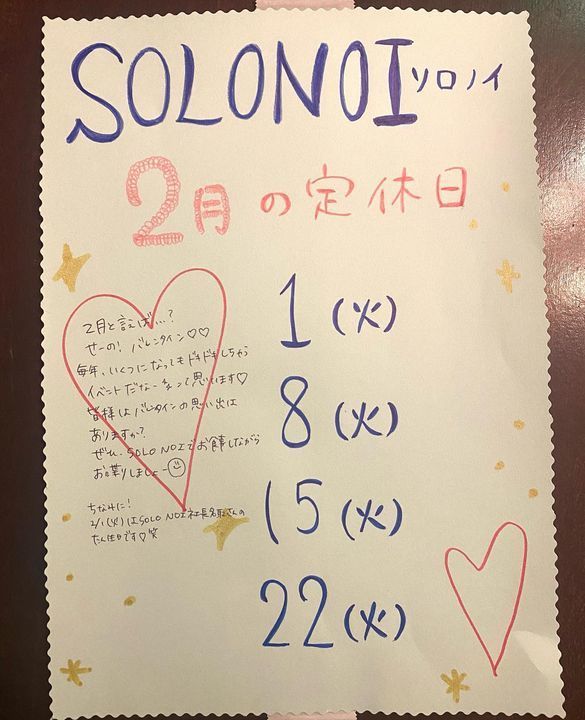 SOLONOI ソロノイ
2月の定休日
1(火)
8(火)
15(火)
22(火)
2月と言えば…?
せーの! バレンタイン♡♡
毎年、いくつになってもドキドキしちゃう
イベントだなーって思ってます♡
皆様はバレンタインの思い出は
ありますか?
ぜひ、SOLO NOIでお食事しながら
お喋りしましょー
ちなみに!
2/1(火)はSOLO NOI社長名取さんの
たん生日です♡笑